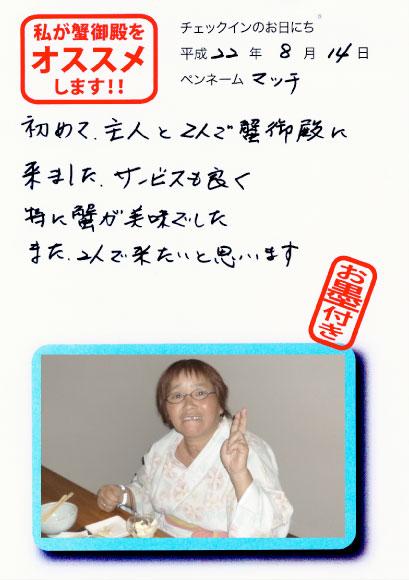 私が蟹御殿を
オススメ
します!!
チェックインのお日にち
平成 22 年 8 月 14 日
ペンネーム マッチ
初めて、主人と2人で蟹御殿に
来ました、サービスも良く
特に蟹が美味でした
また、2人で来たいと思います
お墨付き